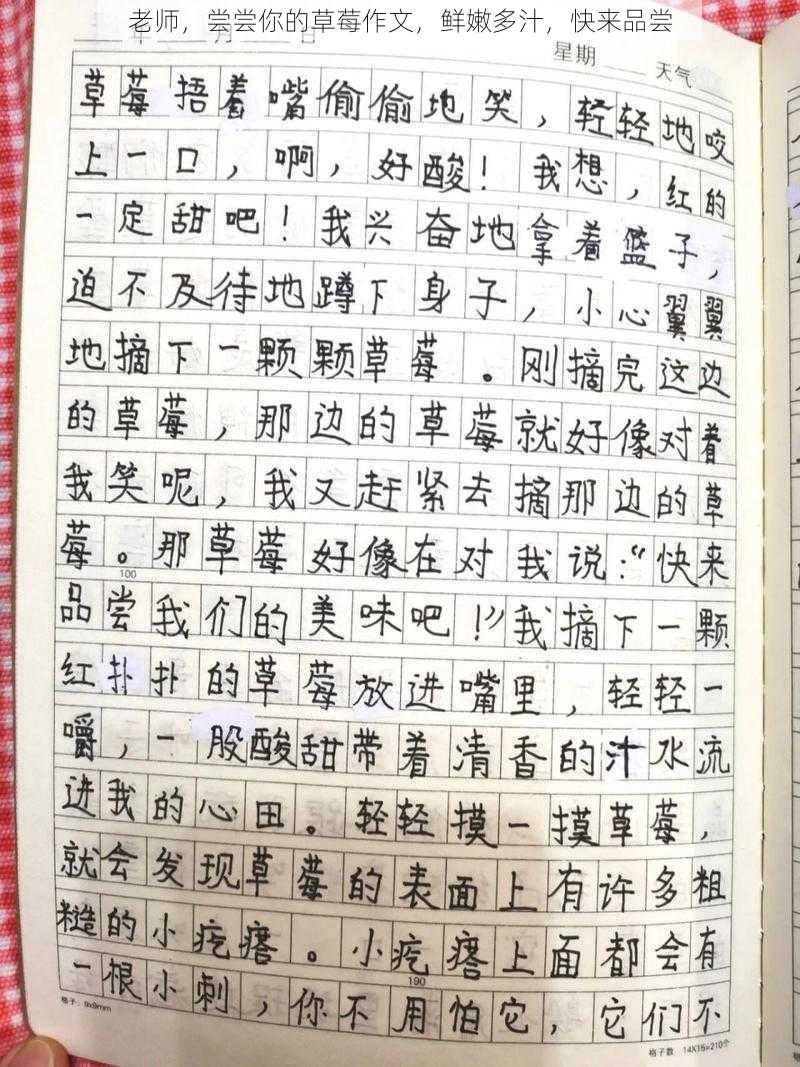 老师，尝尝你的草莓作文，鲜嫩多汁，快来品尝
年 月 日
星期 天气
草莓捂着嘴偷偷地笑，轻轻地咬
上一口，啊，好酸！我想，红的
一定甜吧！我兴奋地拿着篮子，
迫不及待地蹲下身子，小心翼翼
地摘下一颗颗草莓。刚摘完这边
的草莓，那边的草莓就好像对着
我笑呢，我又赶紧去摘那边的草
莓。那草莓好像在对我说：“快来
100
品尝我们的美味吧！”我摘下一颗
红扑扑的草莓放进嘴里，轻轻一
嚼，一股酸甜带着清香的汁水流
进我的心田。轻轻摸一摸草莓，
就会发现草莓的表面上有许多粗
糙的小疙瘩。小疙瘩上面都会有
190
一根小刺，你不用怕它，它们不
格子：9x9mm
格子数 14X15=210个